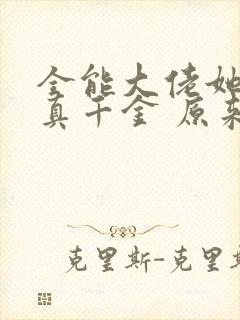 全能大佬她
真千金 原来
克里斯-克里斯